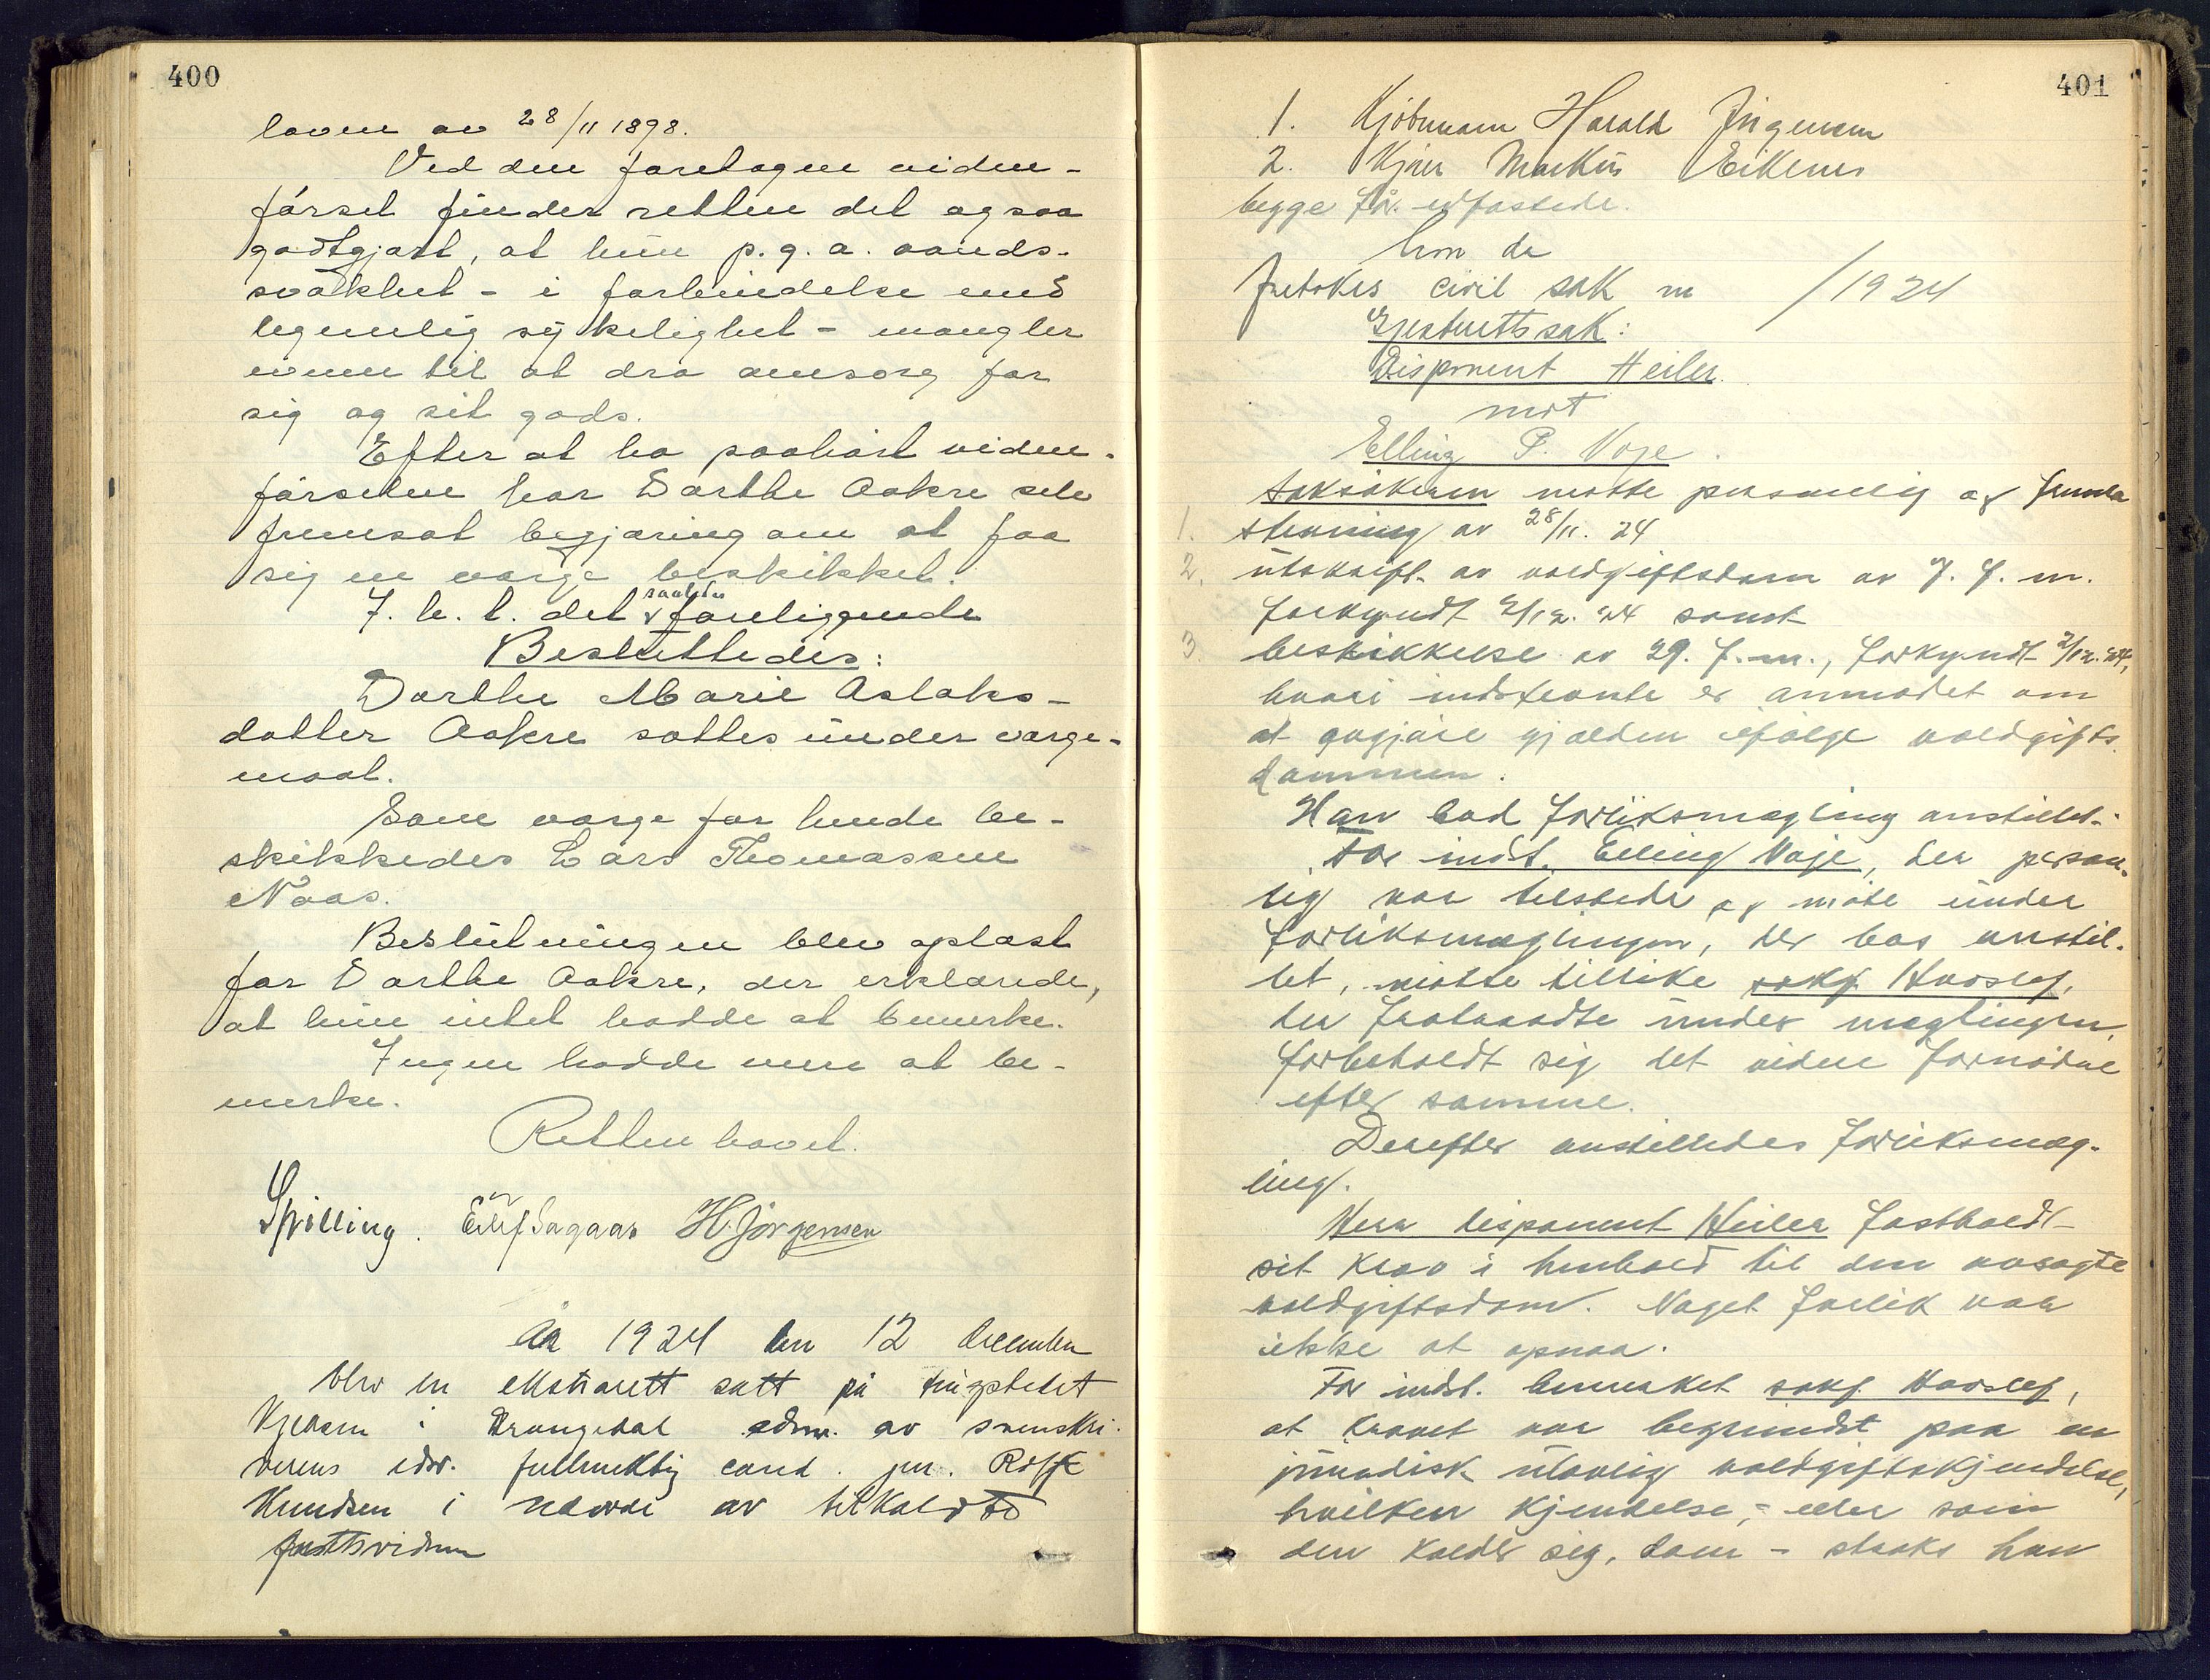 400
loven av 28/11 1898.
Ved den foretagne viden-
førsel finder retten det ogsaa
godtgjort, at hun p.g.a. aands-
svakhet - i forbindelse med
legemlig sykelighet - mangler
evnen til at dra omsorg for
sig og sit gods.
Efter at ha paahørt viden-
førselen har Dorthe Aakre selv
fremsat begjæring om at faa
sig en verge beskikket.
I. h. t. det saaledes foreliggende
Besluttedes:
Dorthe Marie Aslaks-
datter Aakre sættes under verge-
maal.
Som verge for hende be-
skikkedes Lars Thomassen
Naas.
Beslutningen blev oplæst
for Dorthe Aakre, der erklærede,
at hun intet hadde at bemerke.
Ingen hadde mere at be-
merke.
Retten hævet.
Spilling. Eilif Sagaar H. Jörgensen
År 1924 den 12 december
blev en ekstrarett satt på tingstedet
i Drangedal adm. av sorenskri-
verens edsv. fullmektig cand. jur. Rolf
Knudsen i nærvær av tilkaldte
rettsvidner
401
1. Kjøbmann Harald Jörgensen
2. Markus Eikenes
begge før edfæstede.
Hvorda
Foretokes civil sak nr /1924
Gjesterettssak:
Disponent Heiler
mot
Elling P. Voje.
Saksøkeren møtte personlig og fremla
1. stevning av 28/11. 24
2. utskrift av voldgiftsdom av f. m.
forkyndt 2/12. 24 samt
3. beskikkelse av 29. f. m., forkyndt 2/12. 24,
hvori indstevnte er anmodet om
at opgjøre gjælden ifølge voldgifts-
dommen.
Han bad forliksmægling anstillet.
For indst. Elling Voje, der person-
lig var tilstede og møtte under
forliksmæglingen, der bes anstil-
let, møtte tillike sakf. Haaslef,
der fratraadte under mæglingen,
forbeholdt sig det videre fornødne
efter samme.
Derefter anstilledes forliksmæg-
ling.
Herr disponent Heiler fastholdt
sit krav i henhold til den avsagte
voldgiftsdom. Noget forlik var
ikke at opnaa.
For indst. bemerket sakf. Haaslef,
at kravet var begrundet paa en
juridisk ulovlig voldgiftskjendelse,
hvilken kjendelse, - eller som
den kalder sig, dom - straks han